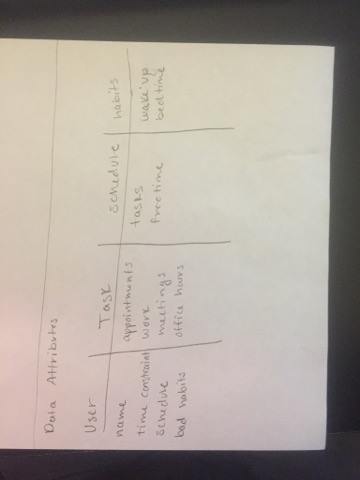 Data Attributes
User Task schedule habits
name appointments tasks wake up
time constraint work freetime bedtime
schedule meetings
bad habits office hours